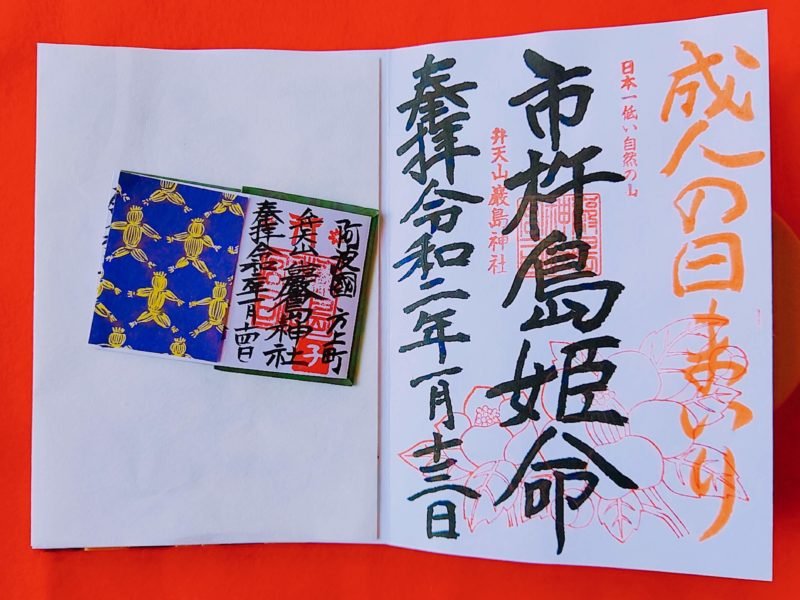 成人の日まいり
日本一低い自然の山
市杵島姫命
弁天山巌島神社
奉拝令和二年一月十三日
阿波國 方上町
弁天山巌島神社
子
奉拝令和二年一月十四日